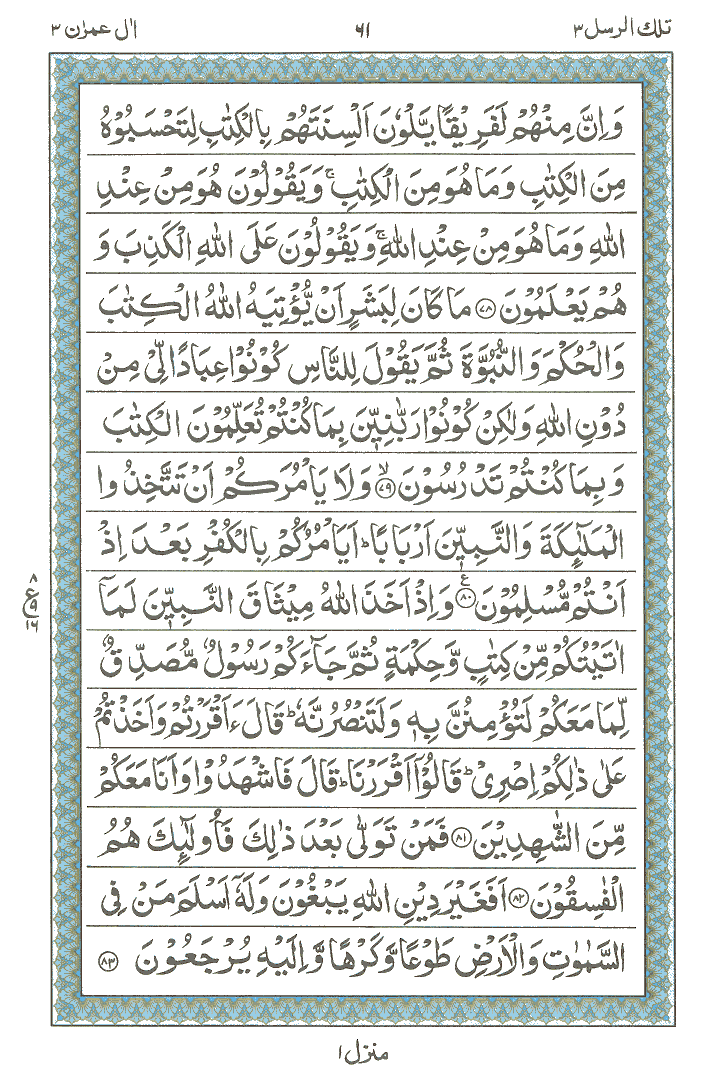 تلك الرسل ٣ ٦١ اٰل عمرٰن ٣
وَاِنَّ مِنْهُمْ لَفَرِيْقًا يَّلْوٗنَ اَلْسِنَتَهُمْ بِالْكِتٰبِ لِتَحْسَبُوْهُ
مِنَ الْكِتٰبِ وَمَا هُوَ مِنَ الْكِتٰبِ ۚ وَيَقُوْلُوْنَ هُوَ مِنْ عِنْدِ
اللّٰهِ وَمَا هُوَ مِنْ عِنْدِ اللّٰهِ ۚ وَيَقُوْلُوْنَ عَلَى اللّٰهِ الْكَذِبَ وَ
هُمْ يَعْلَمُوْنَ ﴿٧٨﴾ مَا كَانَ لِبَشَرٍ اَنْ يُّؤْتِيَهُ اللّٰهُ الْكِتٰبَ
وَالْحُكْمَ وَالنُّبُوَّةَ ثُمَّ يَقُوْلَ لِلنَّاسِ كُوْنُوْا عِبَادًا لِّيْ مِنْ
دُوْنِ اللّٰهِ وَلٰكِنْ كُوْنُوْا رَبّٰنِيّٖنَ بِمَا كُنْتُمْ تُعَلِّمُوْنَ الْكِتٰبَ
وَبِمَا كُنْتُمْ تَدْرُسُوْنَ ﴿٧٩﴾ۙ وَلَا يَاْمُرَكُمْ اَنْ تَتَّخِذُوا
الْمَلٰٓئِكَةَ وَالنَّبِيّٖنَ اَرْبَابًا ؕ اَيَاْمُرُكُمْ بِالْكُفْرِ بَعْدَ اِذْ
اَنْتُمْ مُّسْلِمُوْنَ ﴿٨٠﴾ۧ وَاِذْ اَخَذَ اللّٰهُ مِيْثَاقَ النَّبِيّٖنَ لَمَآ
اٰتَيْتُكُمْ مِّنْ كِتٰبٍ وَّحِكْمَةٍ ثُمَّ جَآءَكُمْ رَسُوْلٌ مُّصَدِّقٌ
لِّمَا مَعَكُمْ لَتُؤْمِنُنَّ بِهٖ وَلَتَنْصُرُنَّهٗ ؕ قَالَ ءَاَقْرَرْتُمْ وَاَخَذْتُمْ
عَلٰى ذٰلِكُمْ اِصْرِيْ ؕ قَالُوْۤا اَقْرَرْنَا ؕ قَالَ فَاشْهَدُوْا وَاَنَا مَعَكُمْ
مِّنَ الشّٰهِدِيْنَ ﴿٨١﴾ فَمَنْ تَوَلّٰى بَعْدَ ذٰلِكَ فَاُولٰٓئِكَ هُمُ
الْفٰسِقُوْنَ ﴿٨٢﴾ اَفَغَيْرَ دِيْنِ اللّٰهِ يَبْغُوْنَ وَلَهٗۤ اَسْلَمَ مَنْ فِى
السَّمٰوٰتِ وَالْاَرْضِ طَوْعًا وَّكَرْهًا وَّاِلَيْهِ يُرْجَعُوْنَ ﴿٨٣﴾
٨
ع
٩
١٦
منزل ١